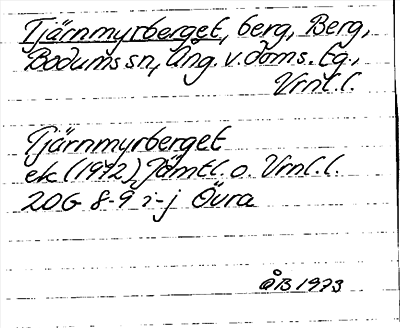 Tjärnmyrberget, berg, Berg,
Bodums sn, Ång. v. doms. tg.,
Vrnl.l.
Tjärnmyrberget
ek (1972) Jämtl. o. Vrnl.l.
20G 8-9 i-j Övra
ÅB 1973